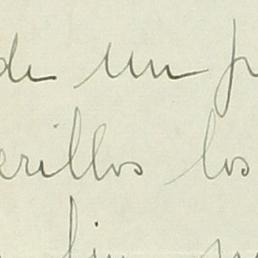 de un p
erillos los
fin